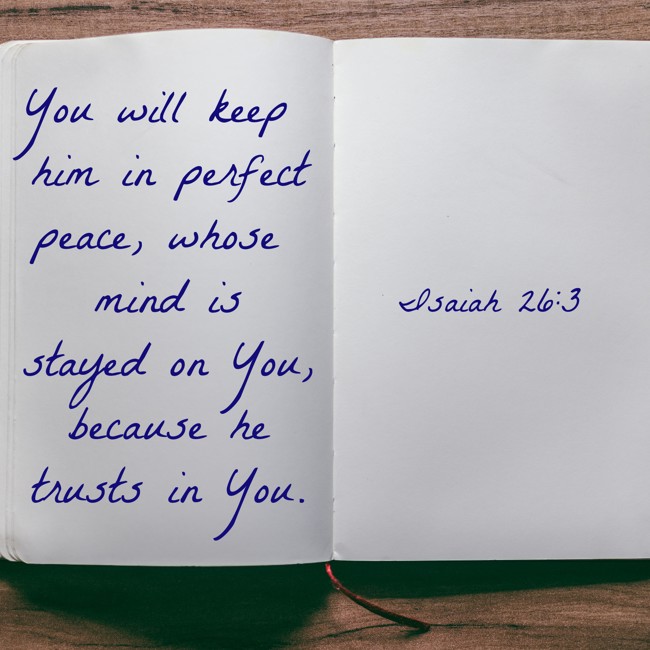 You will keep
him in perfect
peace, whose
mind is
stayed on You,
because he
trusts in You.
Isaiah 26:3